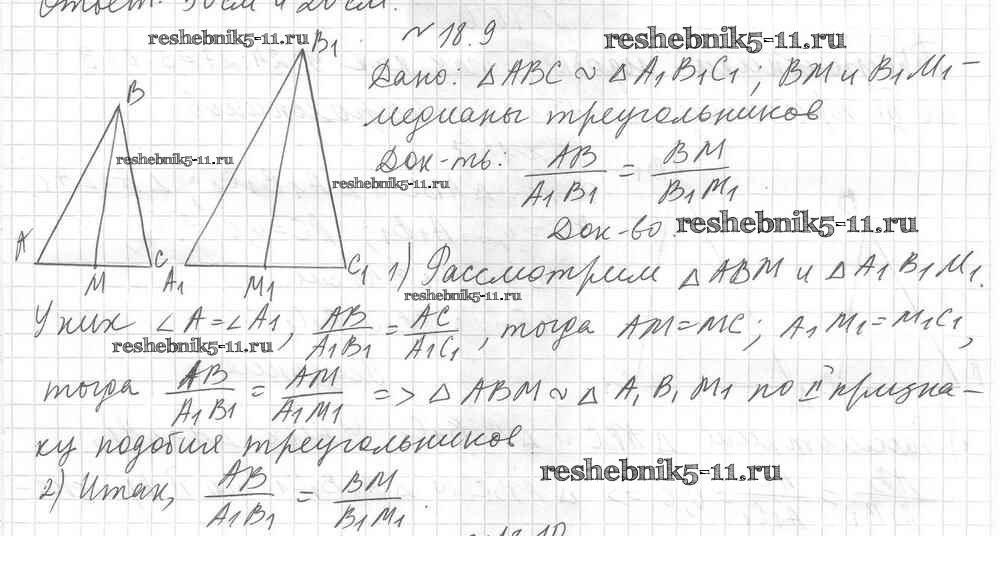 Ответ: 30 см и 20 см.
№ 18.9
reshebnik5-11.ru
reshebnik5-11.ru
Дано: △ ABC ~ △ A₁B₁C₁; BM и B₁M₁ –
медианы треугольников
Док-ть: AB/A₁B₁ = BM/B₁M₁
reshebnik5-11.ru
reshebnik5-11.ru
Док-во:
reshebnik5-11.ru
B
B₁
A
M
C
A₁
M₁
C₁
1) Рассмотрим △ ABM и △ A₁B₁M₁.
reshebnik5-11.ru
У них ∠A=∠A₁, AB/A₁B₁ = AC/A₁C₁, тогда AM=MC; A₁M₁=M₁C₁,
reshebnik5-11.ru
тогда AB/A₁B₁ = AM/A₁M₁ => △ ABM ~ △ A₁B₁M₁ по II призна-
ку подобия треугольников
reshebnik5-11.ru
2) Итак, AB/A₁B₁ = BM/B₁M₁.